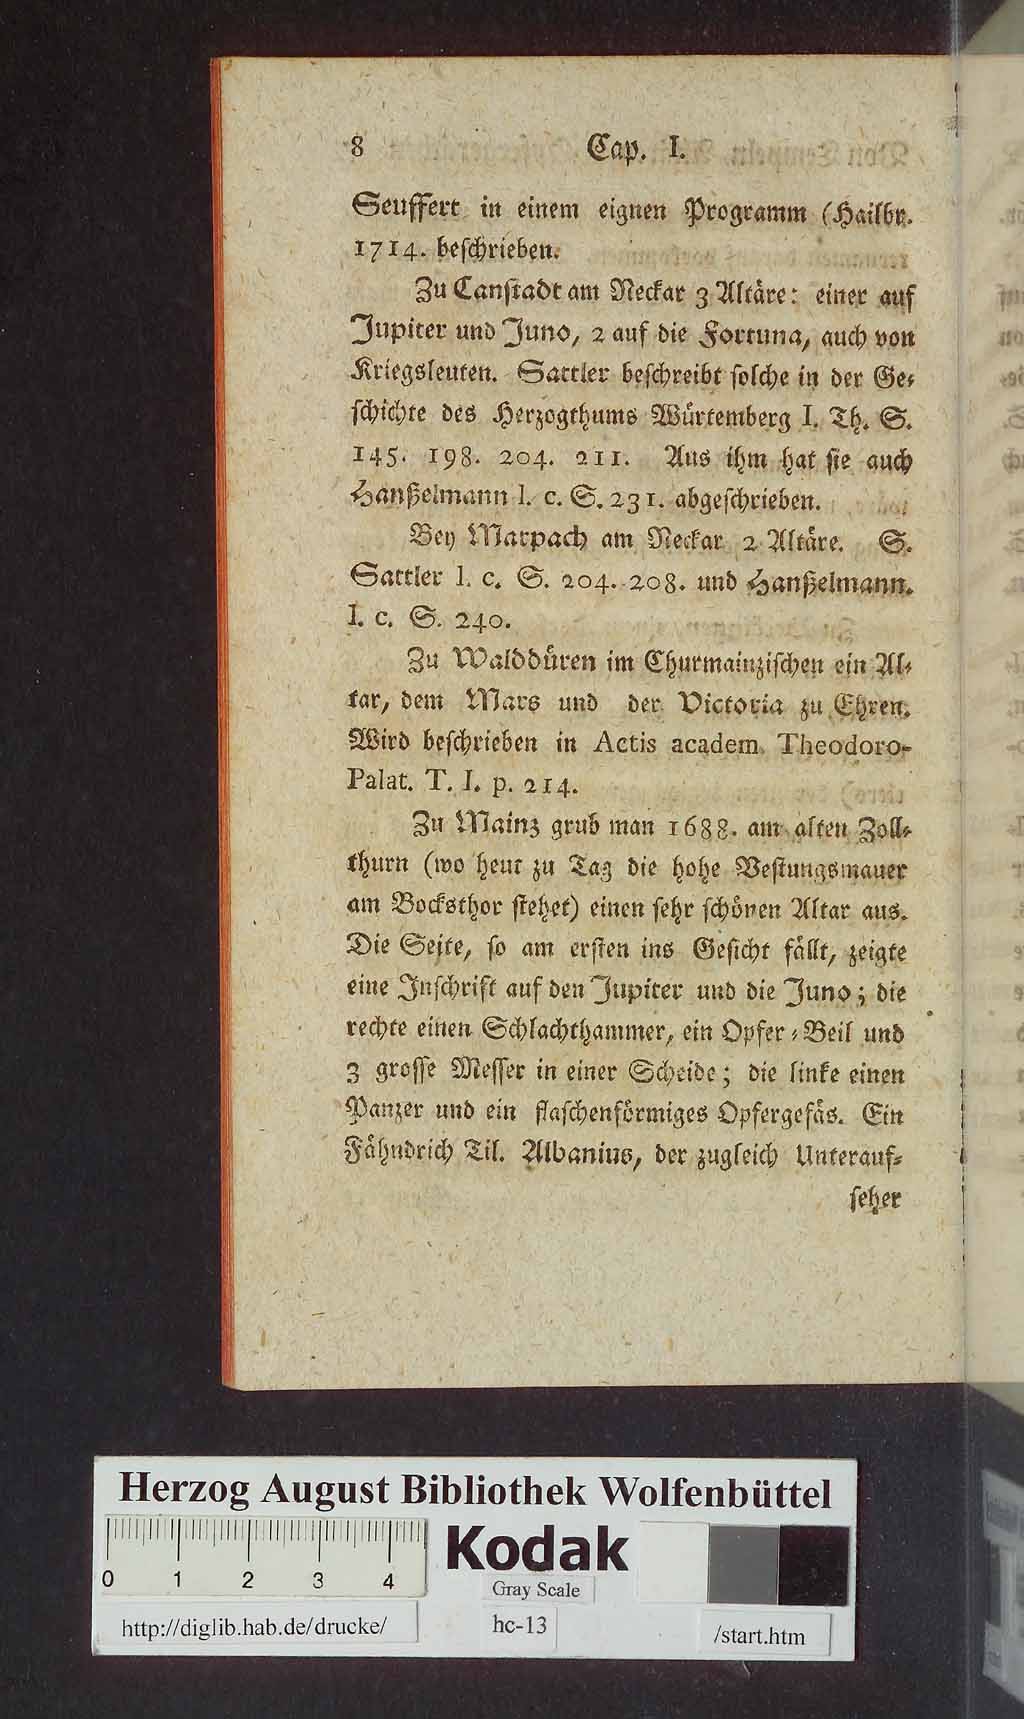 8 Cap. I.
Seuffert in einem eignen Programm (Hailbr.
1714. beschrieben.
Zu Canstadt am Neckar 3 Altäre: einer auf
Jupiter und Juno, 2 auf die Fortuna, auch von
Kriegsleuten. Sattler beschreibt solche in der Ge⸗
schichte des Herzogthums Würtemberg I. Th. S.
145. 198. 204. 211. Aus ihm hat sie auch
Hanßelmann l. c. S. 231. abgeschrieben.
Bey Marpach am Neckar 2 Altäre. S.
Sattler l. c. S. 204. 208. und Hanßelmann.
l. c. S. 240.
Zu Walddüren im Churmainzischen ein Al⸗
tar, dem Mars und der Victoria zu Ehren.
Wird beschrieben in Actis academ. Theodoro-
Palat. T. I. p. 214.
Zu Mainz grub man 1688. am alten Zoll⸗
thurn (wo heut zu Tag die hohe Vestungsmauer
am Bocksthor stehet) einen sehr schönen Altar aus.
Die Seite, so am ersten ins Gesicht fällt, zeigte
eine Inschrift auf den Jupiter und die Juno; die
rechte einen Schlachthammer, ein Opfer⸗Beil und
3 grosse Messer in einer Scheide; die linke einen
Panzer und ein flaschenförmiges Opfergefäs. Ein
Fähndrich Til. Albanius, der zugleich Unterauf⸗
seher
Herzog August Bibliothek Wolfenbüttel
Kodak
0 1 2 3 4
Gray Scale
http://diglib.hab.de/drucke/ hc-13 /start.htm